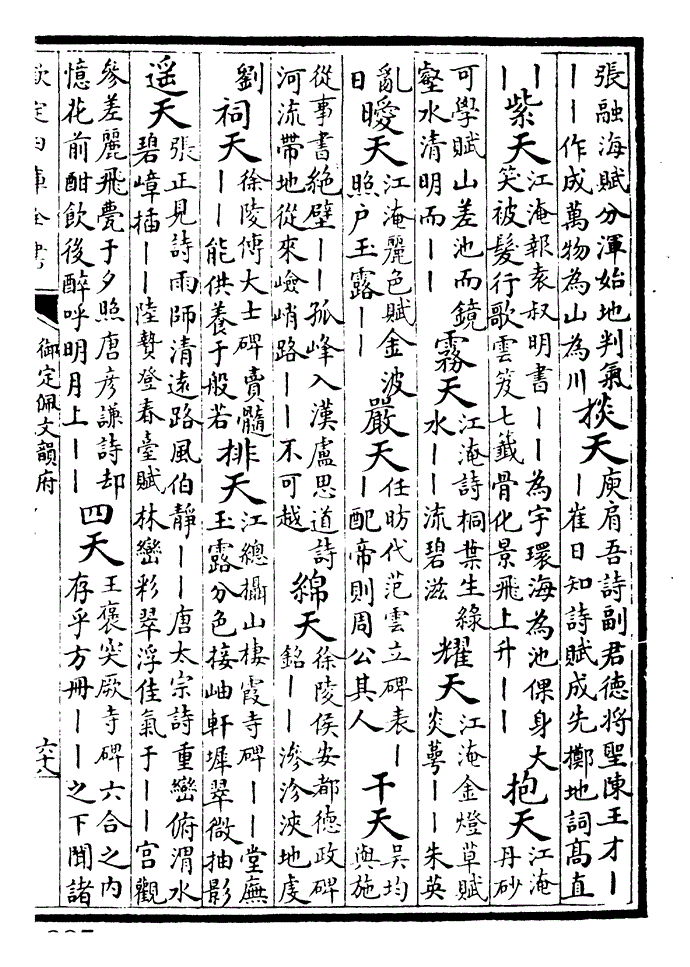 張融海賦分渾始地判氣
——作成萬物為山為川
掞天
庾肩吾詩副君德將聖陳王才—
—崔日知詩賦成先擲地詞髙直
—
—
紫天
江淹報袁叔明書——為宇環海為池倮身大
笑被髮行歌雲笈七籤骨化景飛上升——
抱天
江淹
丹砂
可學賦山差池而鏡
壑水清明而——
霧天
江淹詩桐葉生綠
水——流碧滋
耀天
江淹金燈草賦
炎萼——朱英
亂
日
曖天
江淹麗色賦金波
照户玉露——
嚴天
任昉代范雲立碑表—
—配帝則周公其人
干天
吳均
與施
從事書絶壁——孤峰入漢盧思道詩
河流帶地從來嶮峭路——不可越
綿天
徐陵侯安都德政碑
銘——滲沴浹地虔
劉
祠天
徐陵傅大士碑賣髓
——能供養于般若
排天
江總攝山棲霞寺碑——堂廡
玉露分色接岫軒墀翠微抽影
遥天
張正見詩雨師清遠路風伯靜——唐太宗詩重巒俯渭水
碧嶂插——陸贄登春臺賦林巒彩翠浮佳氣于——宫觀
參差麗飛甍于夕照唐彦謙詩却
憶花前酣飲後醉呼明月上——
四天
王褒突厥寺碑六合之内
存乎方冊——之下聞諸
欽定四庫全書
御定佩文韻府
六十八